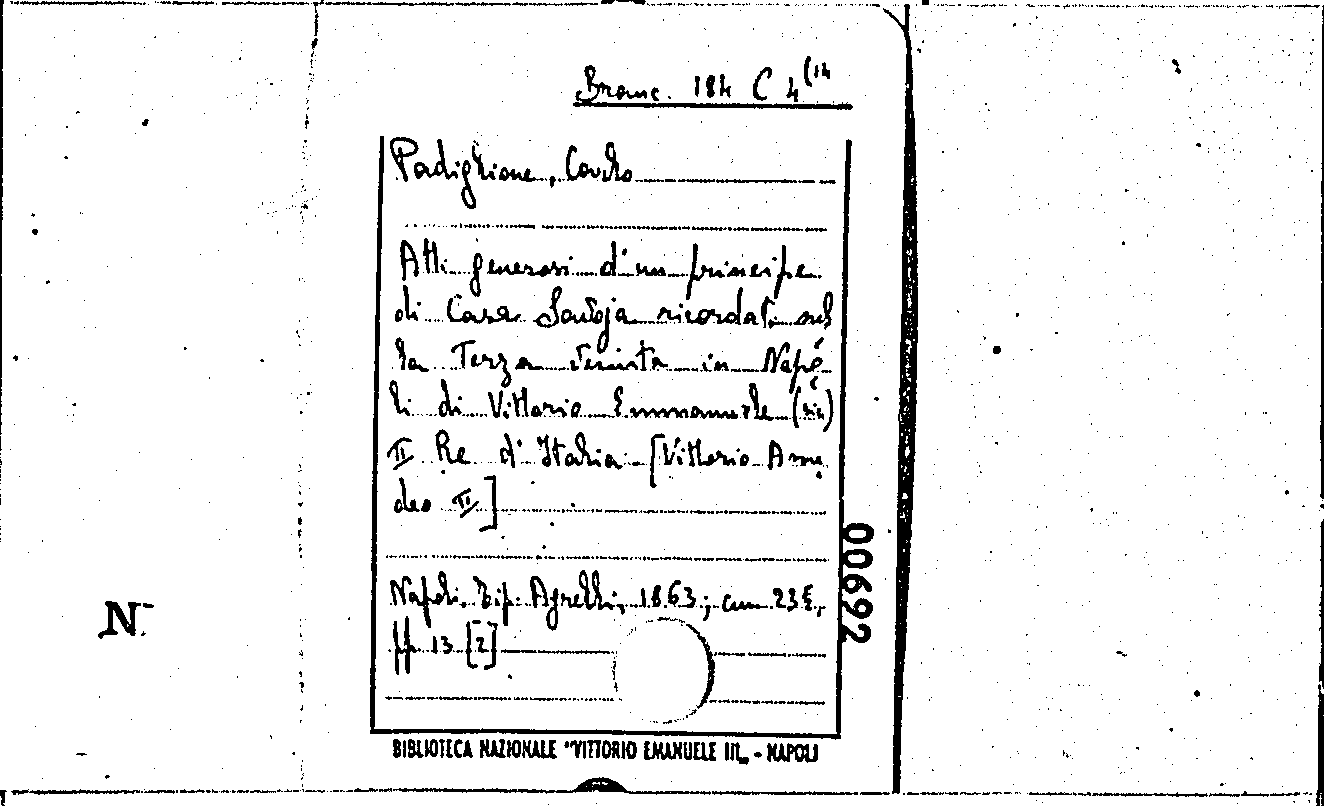 Branc. 184 C 4(14
Padiglione, Carlo
Atti generosi d'un principe
di Casa Savoja ricordati sul
la Terza venuta in Napo
li di Vittorio Emmanuele (sic)
II Re d'Italia [Vittorio Ame
deo II]
Napoli, Tip. Agrelli, 1863; cm 23
pp. 13 [2]
00692
N
BIBLIOTECA NAZIONALE "VITTORIO EMANUELE III" - NAPOLI